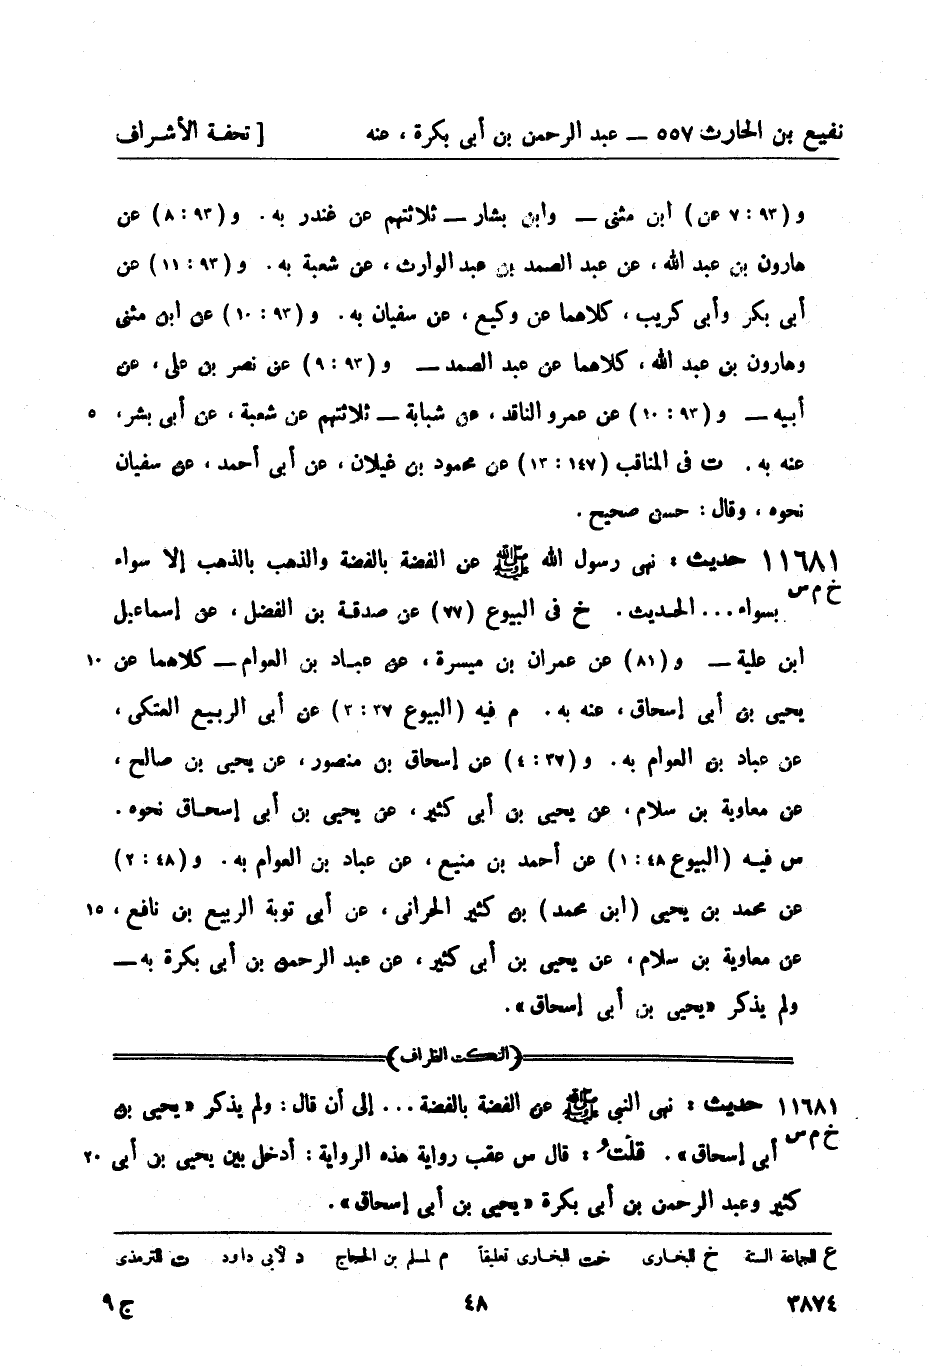 نفيع بن الحارث ٥٥٧ — عبد الرحمن بن أبى بكرة ، عنه [ تحفة الأشراف
و (٩٣ : ٧ عن) ابن مثنى — وابن بشار — ثلاثتهم عن غندر به . و (٩٣ : ٨) عن
هارون بن عبد الله ، عن عبد الصمد بن عبد الوارث ، عن شعبة به . و (٩٣ : ١١) عن
أبى بكر وأبى كريب ، كلاهما عن وكيع ، عن سفيان به . و (٩٣ : ١٠) عن ابن مثنى
وهارون بن عبد الله ، كلاهما عن عبد الصمد — و (٩٣ : ٩) عن نصر بن على ، عن
أبيه — و (٩٣ : ١٠) عن عمرو الناقد ، عن شبابة — ثلاثتهم عن شعبة ، عن أبى بشر ، ٥
عنه به . ت فى المناقب (١٤٧ : ١٣) عن محمود بن غيلان ، عن أبى أحمد ، عن سفيان
نحوه ، وقال : حسن صحيح .
١١٦٨١ حديث : نهى رسول الله ﷺ عن الفضة بالفضة والذهب بالذهب إلا سواء
خ م س بسواء ... الحديث . خ فى البيوع (٧٧) عن صدقة بن الفضل ، عن إسماعيل
ابن علية — و (٨١) عن عمران بن ميسرة ، عن عباد بن العوام — كلاهما عن ١٠
يحيى بن أبى إسحاق ، عنه به . م فيه (البيوع ٣٧ : ٣) عن أبى الربيع العتكى ،
عن عباد بن العوام به . و (٣٧ : ٤) عن إسحاق بن منصور ، عن يحيى بن صالح ،
عن معاوية بن سلام ، عن يحيى بن أبى كثير ، عن يحيى بن أبى إسحاق نحوه .
س فيه (البيوع ٤٨ : ١) عن أحمد بن منيع ، عن عباد بن العوام به . و (٤٨ : ٢)
عن محمد بن يحيى (ابن محمد) بن كثير الحرانى ، عن أبى توبة الربيع بن نافع ، ١٥
عن معاوية بن سلام ، عن يحيى بن أبى كثير ، عن عبد الرحمن بن أبى بكرة به —
ولم يذكر «يحيى بن أبى إسحاق» .
(النكت الظراف)
١١٦٨١ حديث : نهى النبي ﷺ عن الفضة بالفضة ... إلى أن قال : ولم يذكر «يحيى بن
خ م س أبى إسحاق» . قلتُ : قال س عقب رواية هذه الرواية : أدخل بين يحيى بن أبى ٢٠
كثير وعبد الرحمن بن أبى بكرة «يحيى بن أبى إسحاق» .
ع للجماعة الستة خ للبخارى خت للبخارى تعليقاً م لمسلم بن الحجاج د لأبى داود ت للترمذى
٣٨٧٤ ٤٨ ج ٩